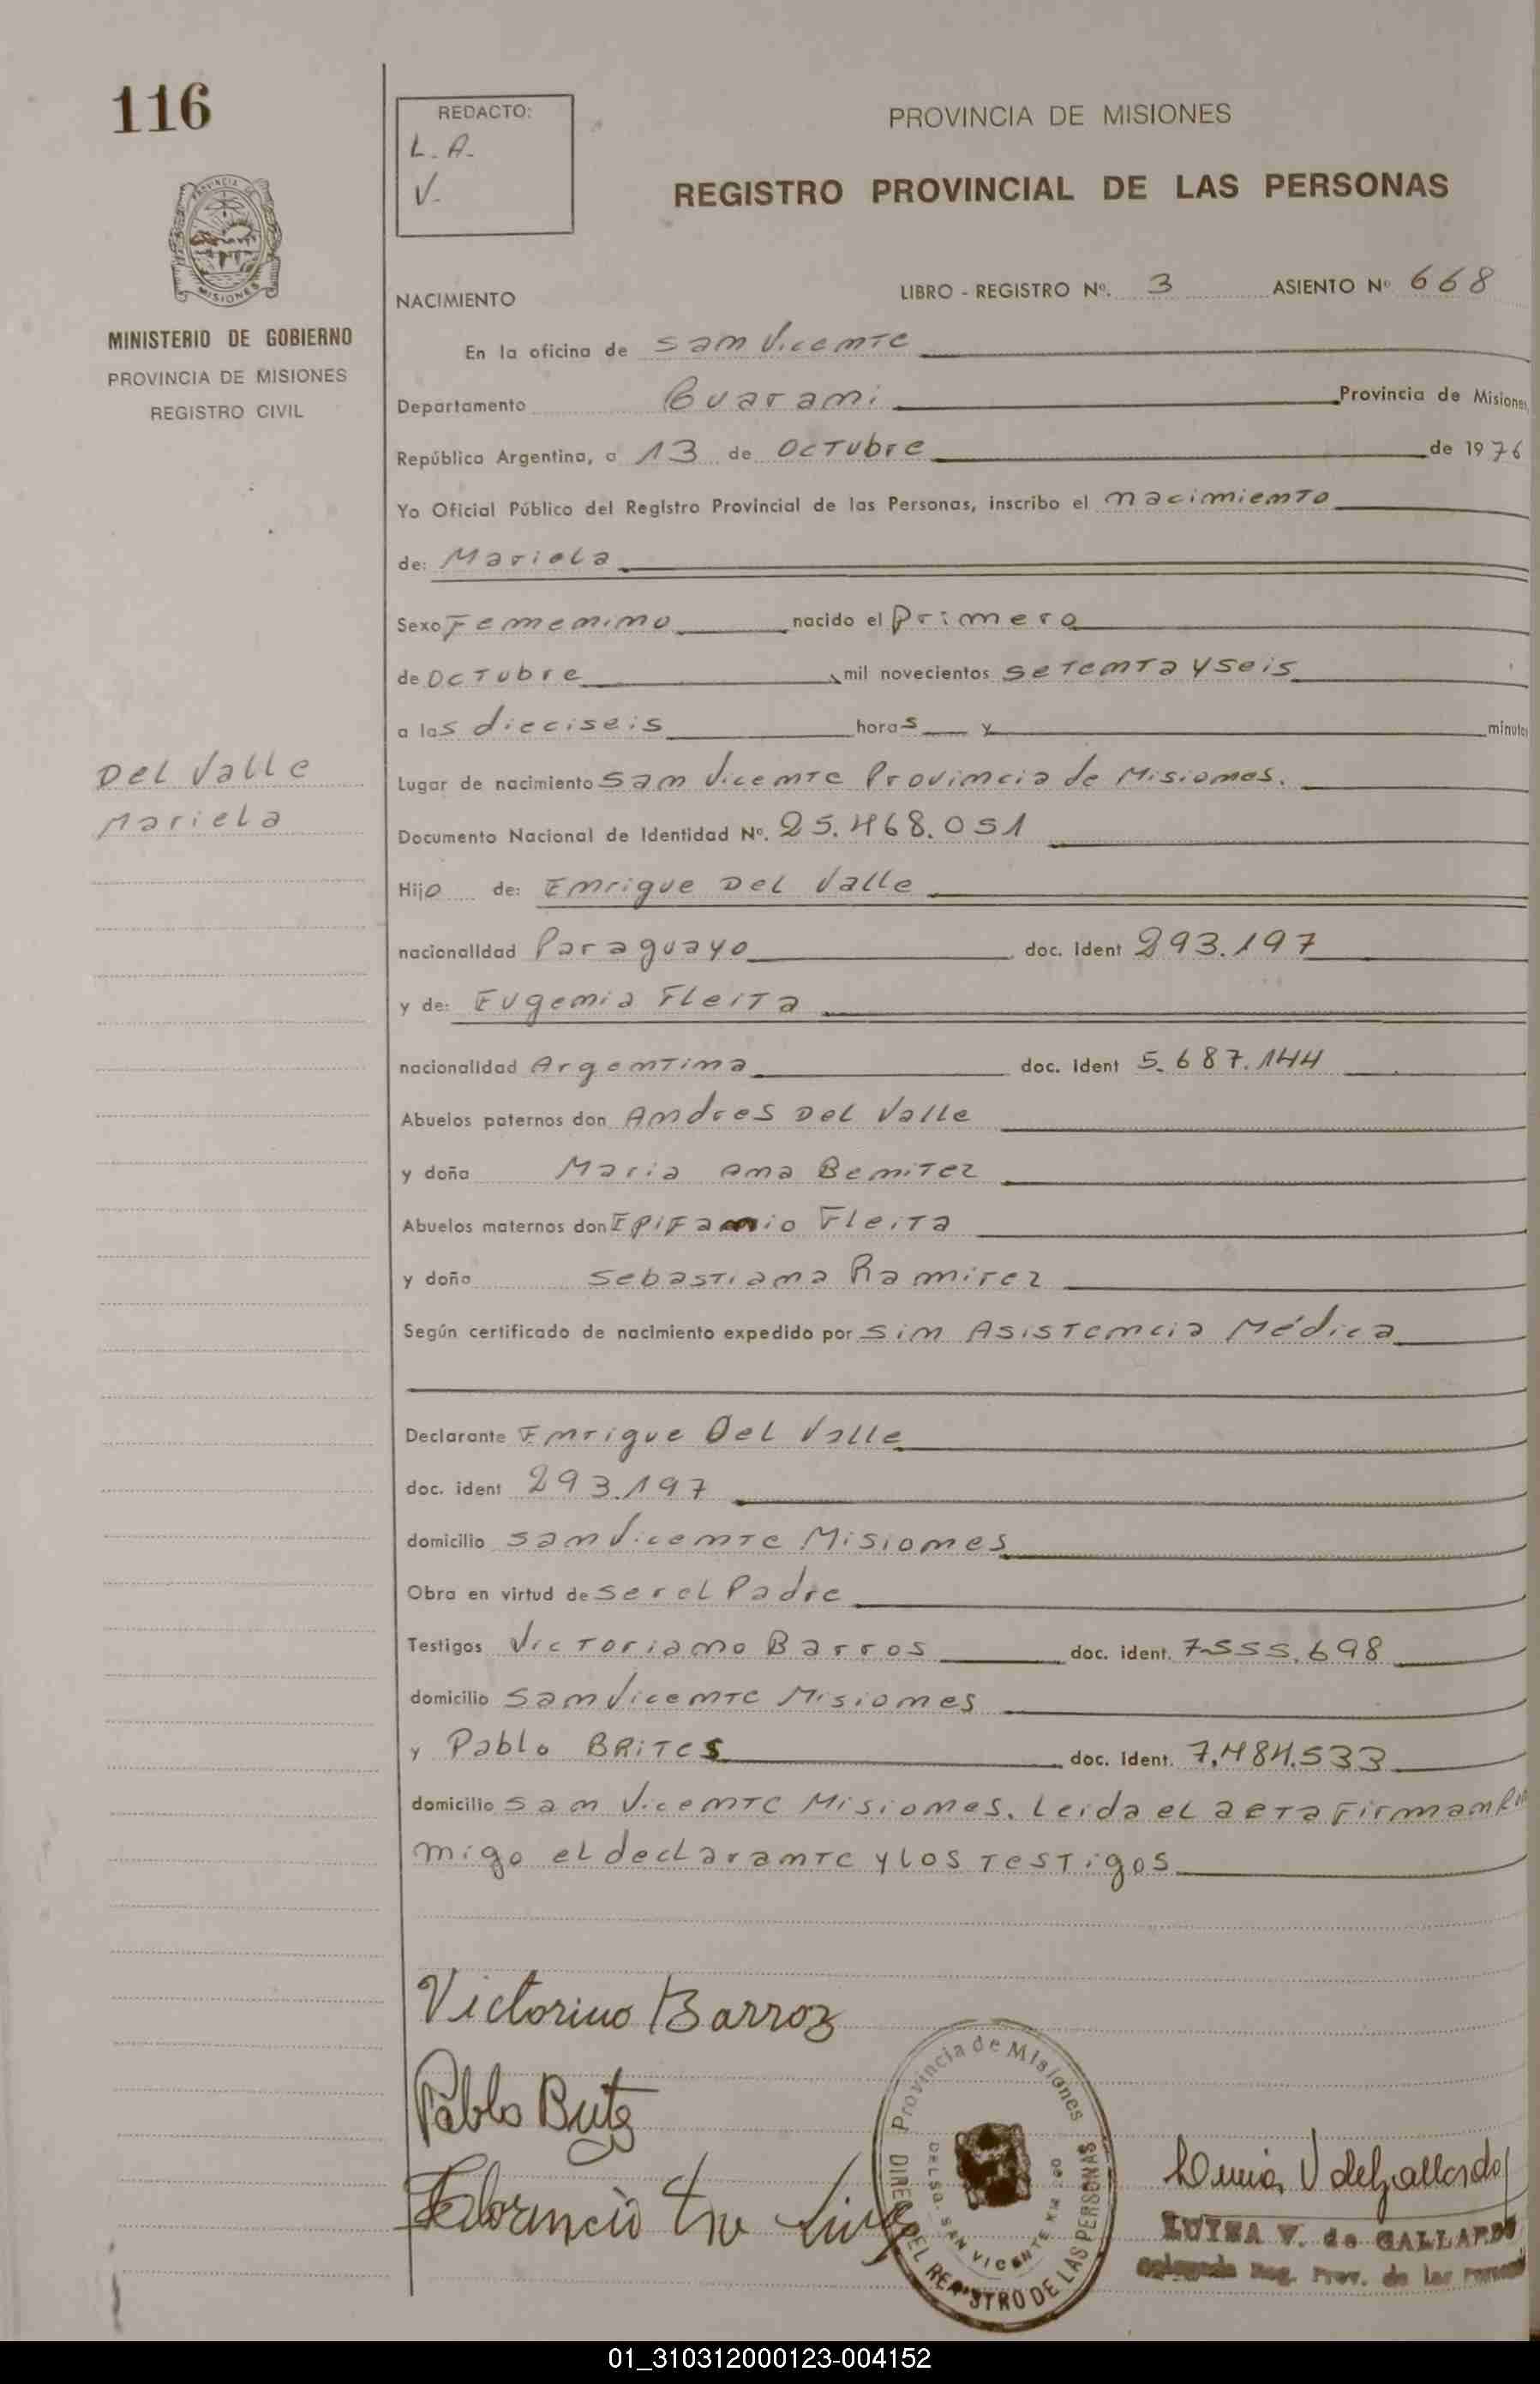 116
REDACTO:
L. A.
V.
PROVINCIA DE MISIONES
REGISTRO PROVINCIAL DE LAS PERSONAS
MISIONES
MINISTERIO DE GOBIERNO
PROVINCIA DE MISIONES
REGISTRO CIVIL
NACIMIENTO LIBRO - REGISTRO Nº. 3 ASIENTO Nº 668
En la oficina de San Vicente
Departamento Guarani Provincia de Misiones,
República Argentina, a 13 de Octubre de 1976
Yo Oficial Público del Registro Provincial de las Personas, inscribo el nacimiento
de: Mariela
Sexo Femenino nacido el Primero
de Octubre mil novecientos setenta y seis
a las dieciseis horas y minutos
Del Valle
Mariela
Lugar de nacimiento San Vicente Provincia de Misiones.
Documento Nacional de Identidad Nº. 25.468.051
Hijo de: Enrique Del Valle
nacionalidad Paraguayo doc. ident 293.197
y de: Eugenia Fleita
nacionalidad Argentina doc. ident 5.687.144
Abuelos paternos don Andres Del Valle
y doña Maria Ana Benitez
Abuelos maternos don Epifanio Fleita
y doña Sebastiana Ramirez
Según certificado de nacimiento expedido por sin Asistencia Médica
Declarante Enrique Del Valle
doc. ident 293.197
domicilio San Vicente Misiones
Obra en virtud de ser el Padre
Testigos Victoriano Barros doc. ident. 7.555.698
domicilio San Vicente Misiones
y Pablo BRITES doc. ident. 7.484.533
domicilio San Vicente Misiones. Leida el acta firman con
migo el declarante y los testigos
Victorino Barroz
Pablo Brites
Provincia de Misiones
DELEG. SAN VICENTE KM
DIREC DEL REGISTRO DE LAS PERSONAS
V de Gallardo
LUISA V. de GALLARDO
Delegada Reg. Prov. de las Personas
01_310312000123-004152